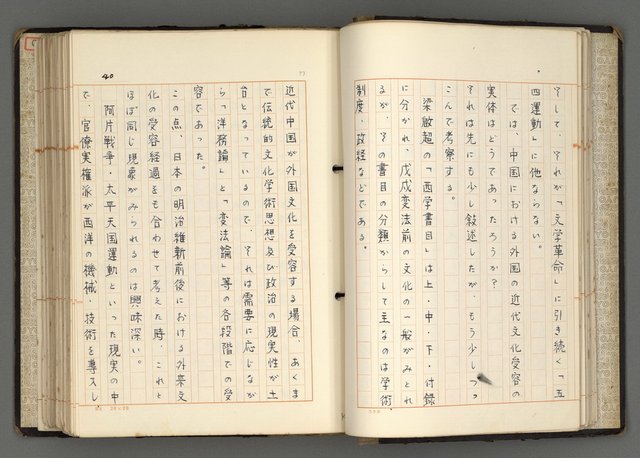 そして、それが「文学革命」に引き続く「五
四運動」に他ならない。
では、中国における外国の近代文化受容の
実体はどうであったろうか?
それは先にも少し叙述したが、もう少しつっ
こんで考察する。
梁啟超の「西学書目」は上・中・下・付録
に分かれ、戊戌変法前の文化の一般がみとれ
るが、その書目の分類からして主なのは学術、
制度、政経などである。
40
近代中国が外国文化を受容する場合、あくま
で伝統的文化学術思想及び政治の現実性が土
台となっているので、それは需要に応じなが
ら「洋務論」と「変法論」等の各段階での受
容であった。
この点、日本の明治維新前後における外来文
化の受容経過をも合わせて考えた時、これと
ほぼ同じ現象がみられるのは興味深い。
阿片戦争・太平天国運動といった現実の中
で、官僚実権派が西洋の機械・技術を導入し
20×20